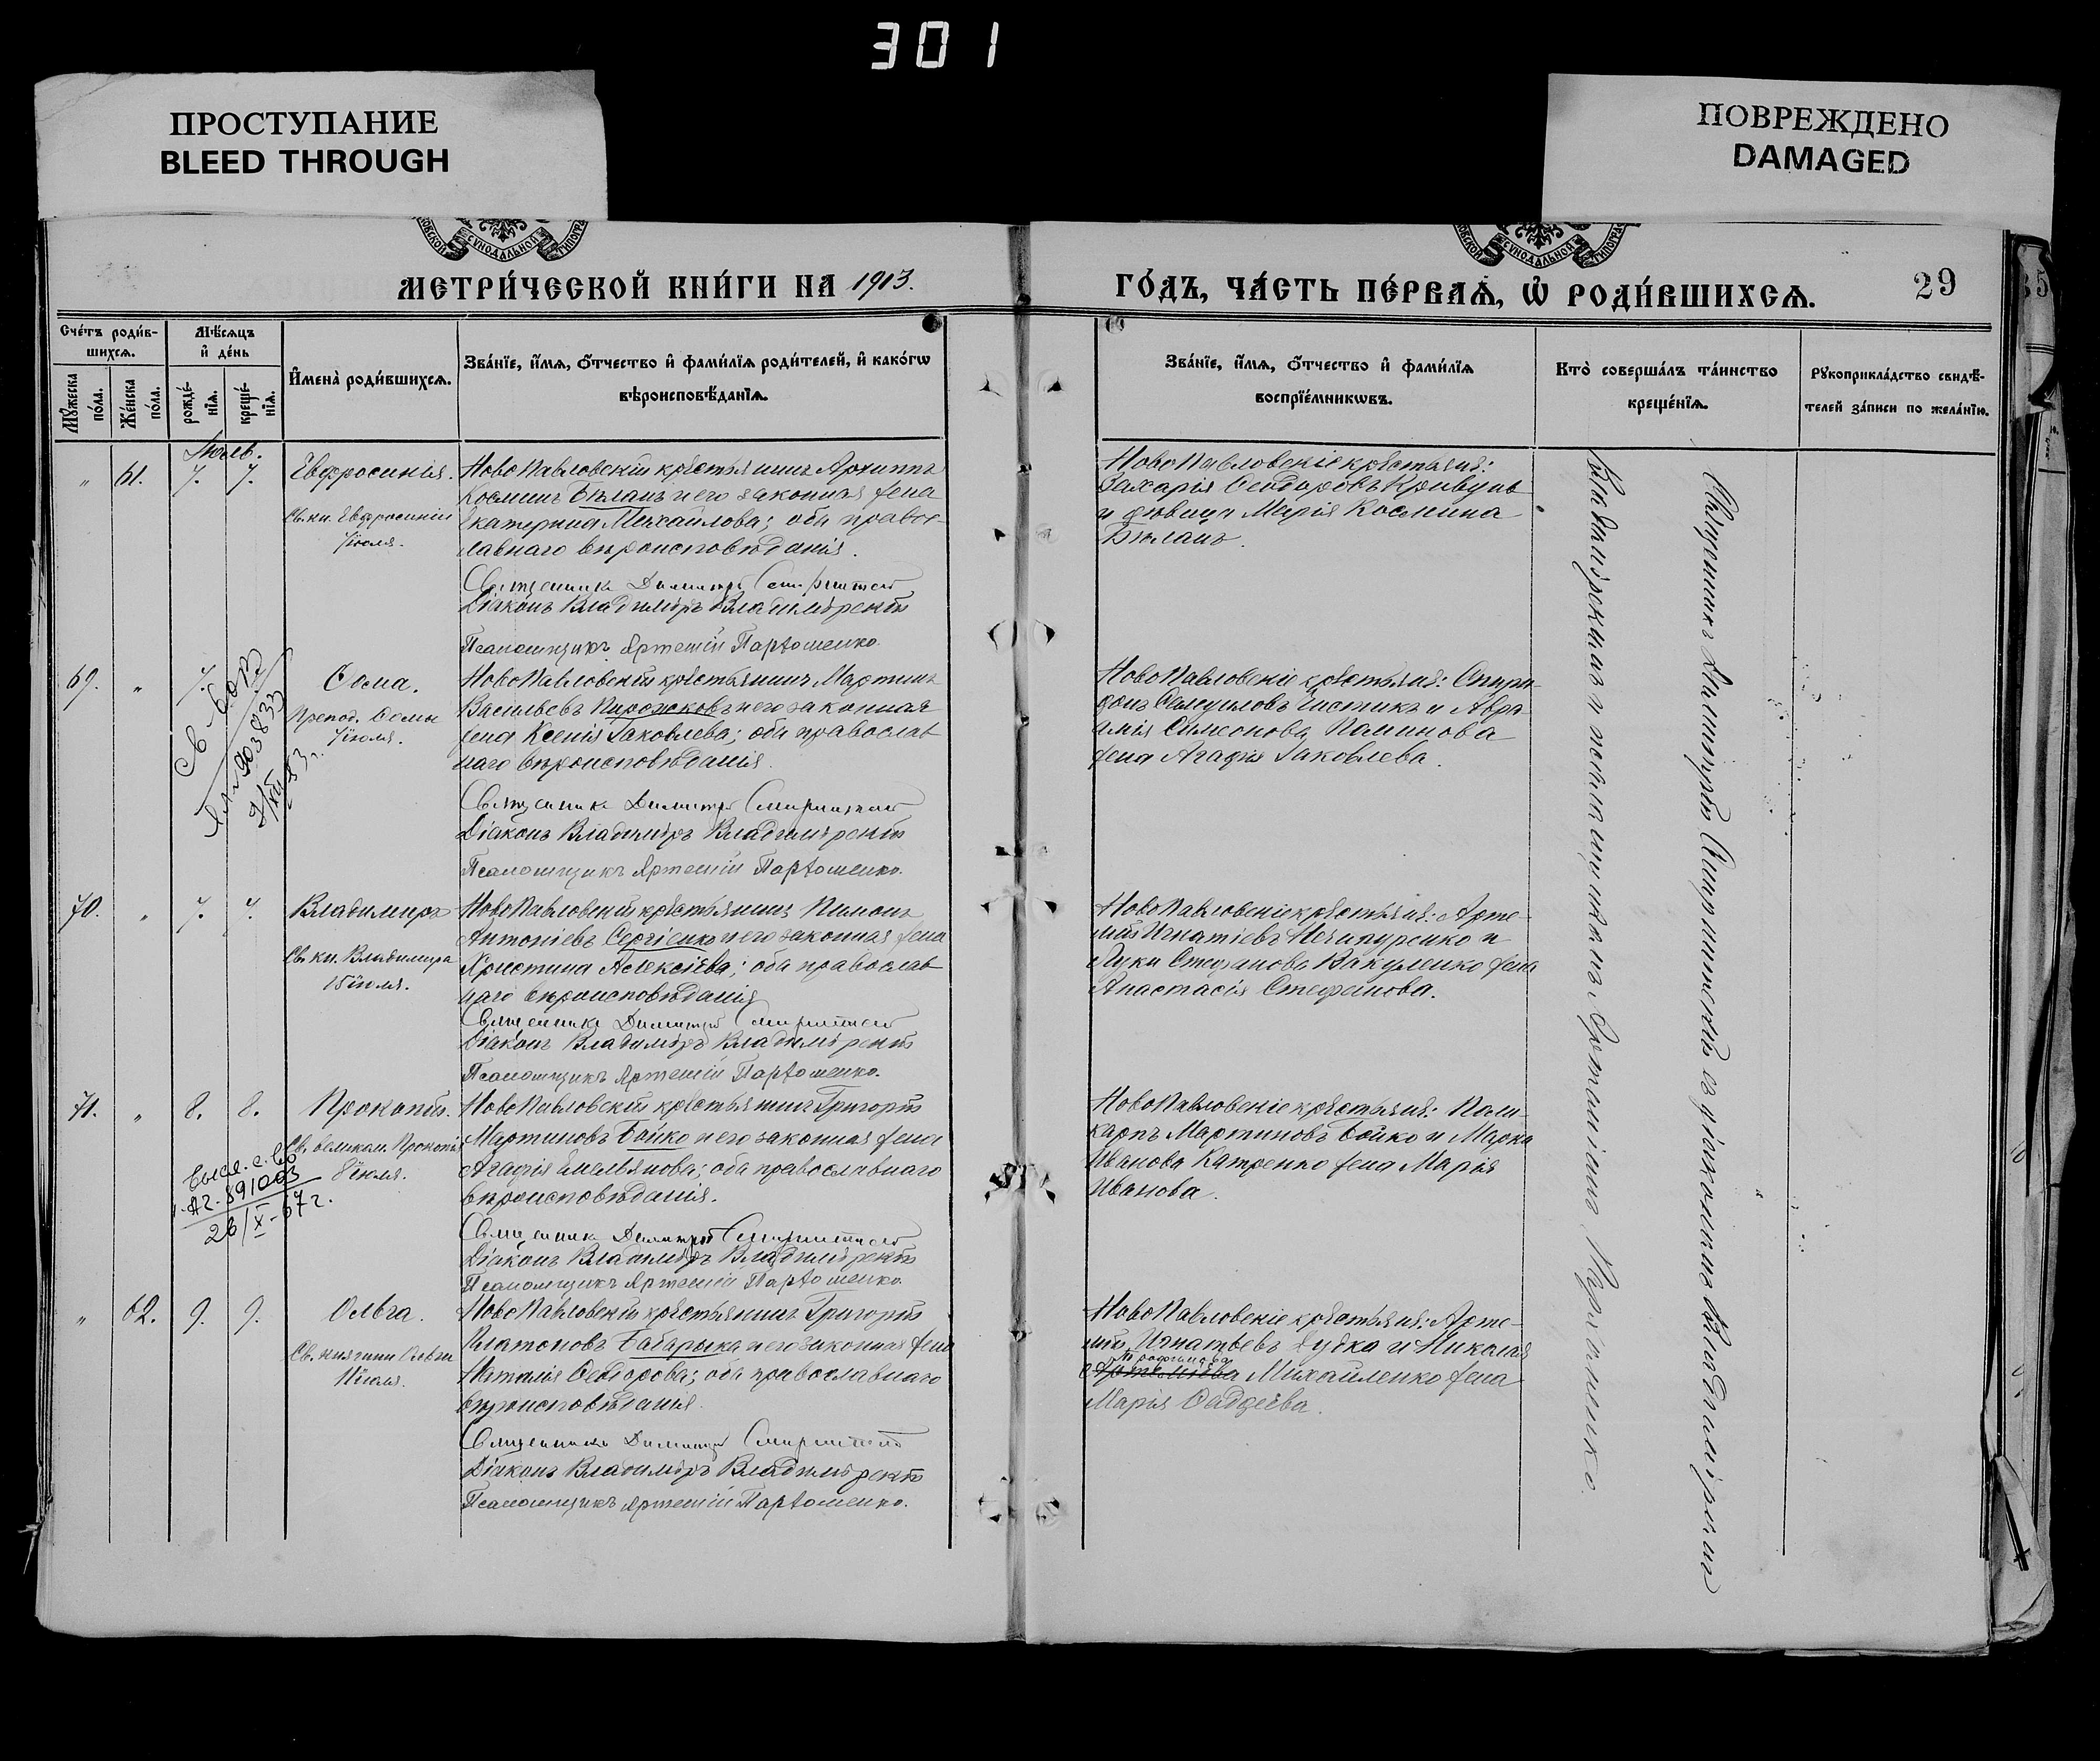 301
ПРОСТУПАНИЕ
BLEED THROUGH
ПОВРЕЖДЕНО
DAMAGED
СѴНОДАЛЬНОЙ
СѴНОДАЛЬНОЙ
МЕТРИ́ЧЕСКОЙ КНИ́ГИ НА 1913.
ГО́ДЪ, ЧА́СТЬ ПЕ́РВАѦ, Ѡ҆ РОДИ́ВШИХСѦ.
29
Сче́тъ роди́в-
шихсѧ.
Мꙋ́жеска по́ла.
Же́нска по́ла.
Мѣ́сѧцъ
и҆ де́нь
рожде́-
нїѧ.
креще́-
нїѧ.
И҆мена̀ роди́вшихсѧ.
Зва́нїе, и҆́мѧ, ѻ҆́тчество и҆ фами́лїѧ роди́телей, и҆ како́гѡ
вѣроисповѣ́данїѧ.
Зва́нїе, и҆́мѧ, ѻ҆́тчество и҆ фами́лїѧ
воспрїе́мникѡвъ.
Кто̀ соверша́лъ та́инство
креще́нїѧ.
Рꙋкоприкла́дство свидѣ́-
телей за́писи по жела́нїю.
Іюль.
„ 61. 7. 7.
Евфросинія.
Св. кн. Евфросиніи
7 іюля.
НовоПавловскій крестьянинъ Архиппъ
Косминъ Бѣланъ и его законная жена
Екатерина Михайлова; оба правос-
лавнаго вѣроисповѣданія.
Священникъ Димитрій
Діаконъ Владиміръ Владимірскій
Псаломщикъ Артемій Пархоменко.
НовоПавловскіе крестьяне:
Захарія Сидоровъ Кривунь
и дѣвица Марія Космина
Бѣланъ.
69. „ 7.
Ѳома.
Препод. Ѳомы
7 іюля.
НовоПавловскій крестьянинъ Мартинъ
Васильевъ Пирожковъ и его законная
жена Ксенія Іаковлева; оба православ
наго вѣроисповѣданія.
Священникъ Димитрій
Діаконъ Владиміръ Владимірскій
Псаломщикъ Артемій Пархоменко.
НовоПавловскіе крестьяне: Спири-
донъ Самуиловъ Чистикъ и Авра-
амія Симеонова Калинова
жена Агафія Іаковлева.
70. „ 7. 7.
Владиміръ
Св. кн. Владиміра
15 іюля.
НовоПавловскій крестьянинъ Пименъ
Антоніевъ Сергіенко и его законная жена
Христина Алексіева; оба православ
наго вѣроисповѣданія
Священникъ Димитрій
Діаконъ Владиміръ Владимірскій
Псаломщикъ Артемій Пархоменко.
НовоПавловскіе крестьяне: Арте-
мій Игнатіевъ Нечипуренко и
Луки Стефанова Вакуленко жена
Анастасія Стефанова.
71. „ 8. 8.
Прокопій.
Св. великом. Прокопія
8 іюля.
26/X-67г.
НовоПавловскій крестьянинъ Григорій
Мартиновъ Бойко и его законная жена
Агафія Емельянова; оба православнаго
вѣроисповѣданія.
Священникъ Димитрій
Діаконъ Владиміръ Владимірскій
Псаломщикъ Артемій Пархоменко.
НовоПавловскіе крестьяне: Поли-
карпъ Мартиновъ Бойко и Марка
Иванова Катренко жена Марія
Иванова.
„ 62. 9. 9.
Ольга.
Св. княгини Ольги
11 іюля.
НовоПавловскій крестьянинъ Григорій
Платоновъ Бабарыка и его законная жена
Наталія Ѳеодорова; оба православнаго
вѣроисповѣданія.
Священникъ Димитрій
Діаконъ Владиміръ Владимірскій
Псаломщикъ Артемій Пархоменко.
НовоПавловскіе крестьяне: Арте-
мій Игнатьевъ Дудка и Николая
Михайленко жена
Марія Ѳаддеева.
Священникъ Димитрій съ діакономъ Владимірскимъ
и псаломщикомъ Артеміемъ Пархоменко.